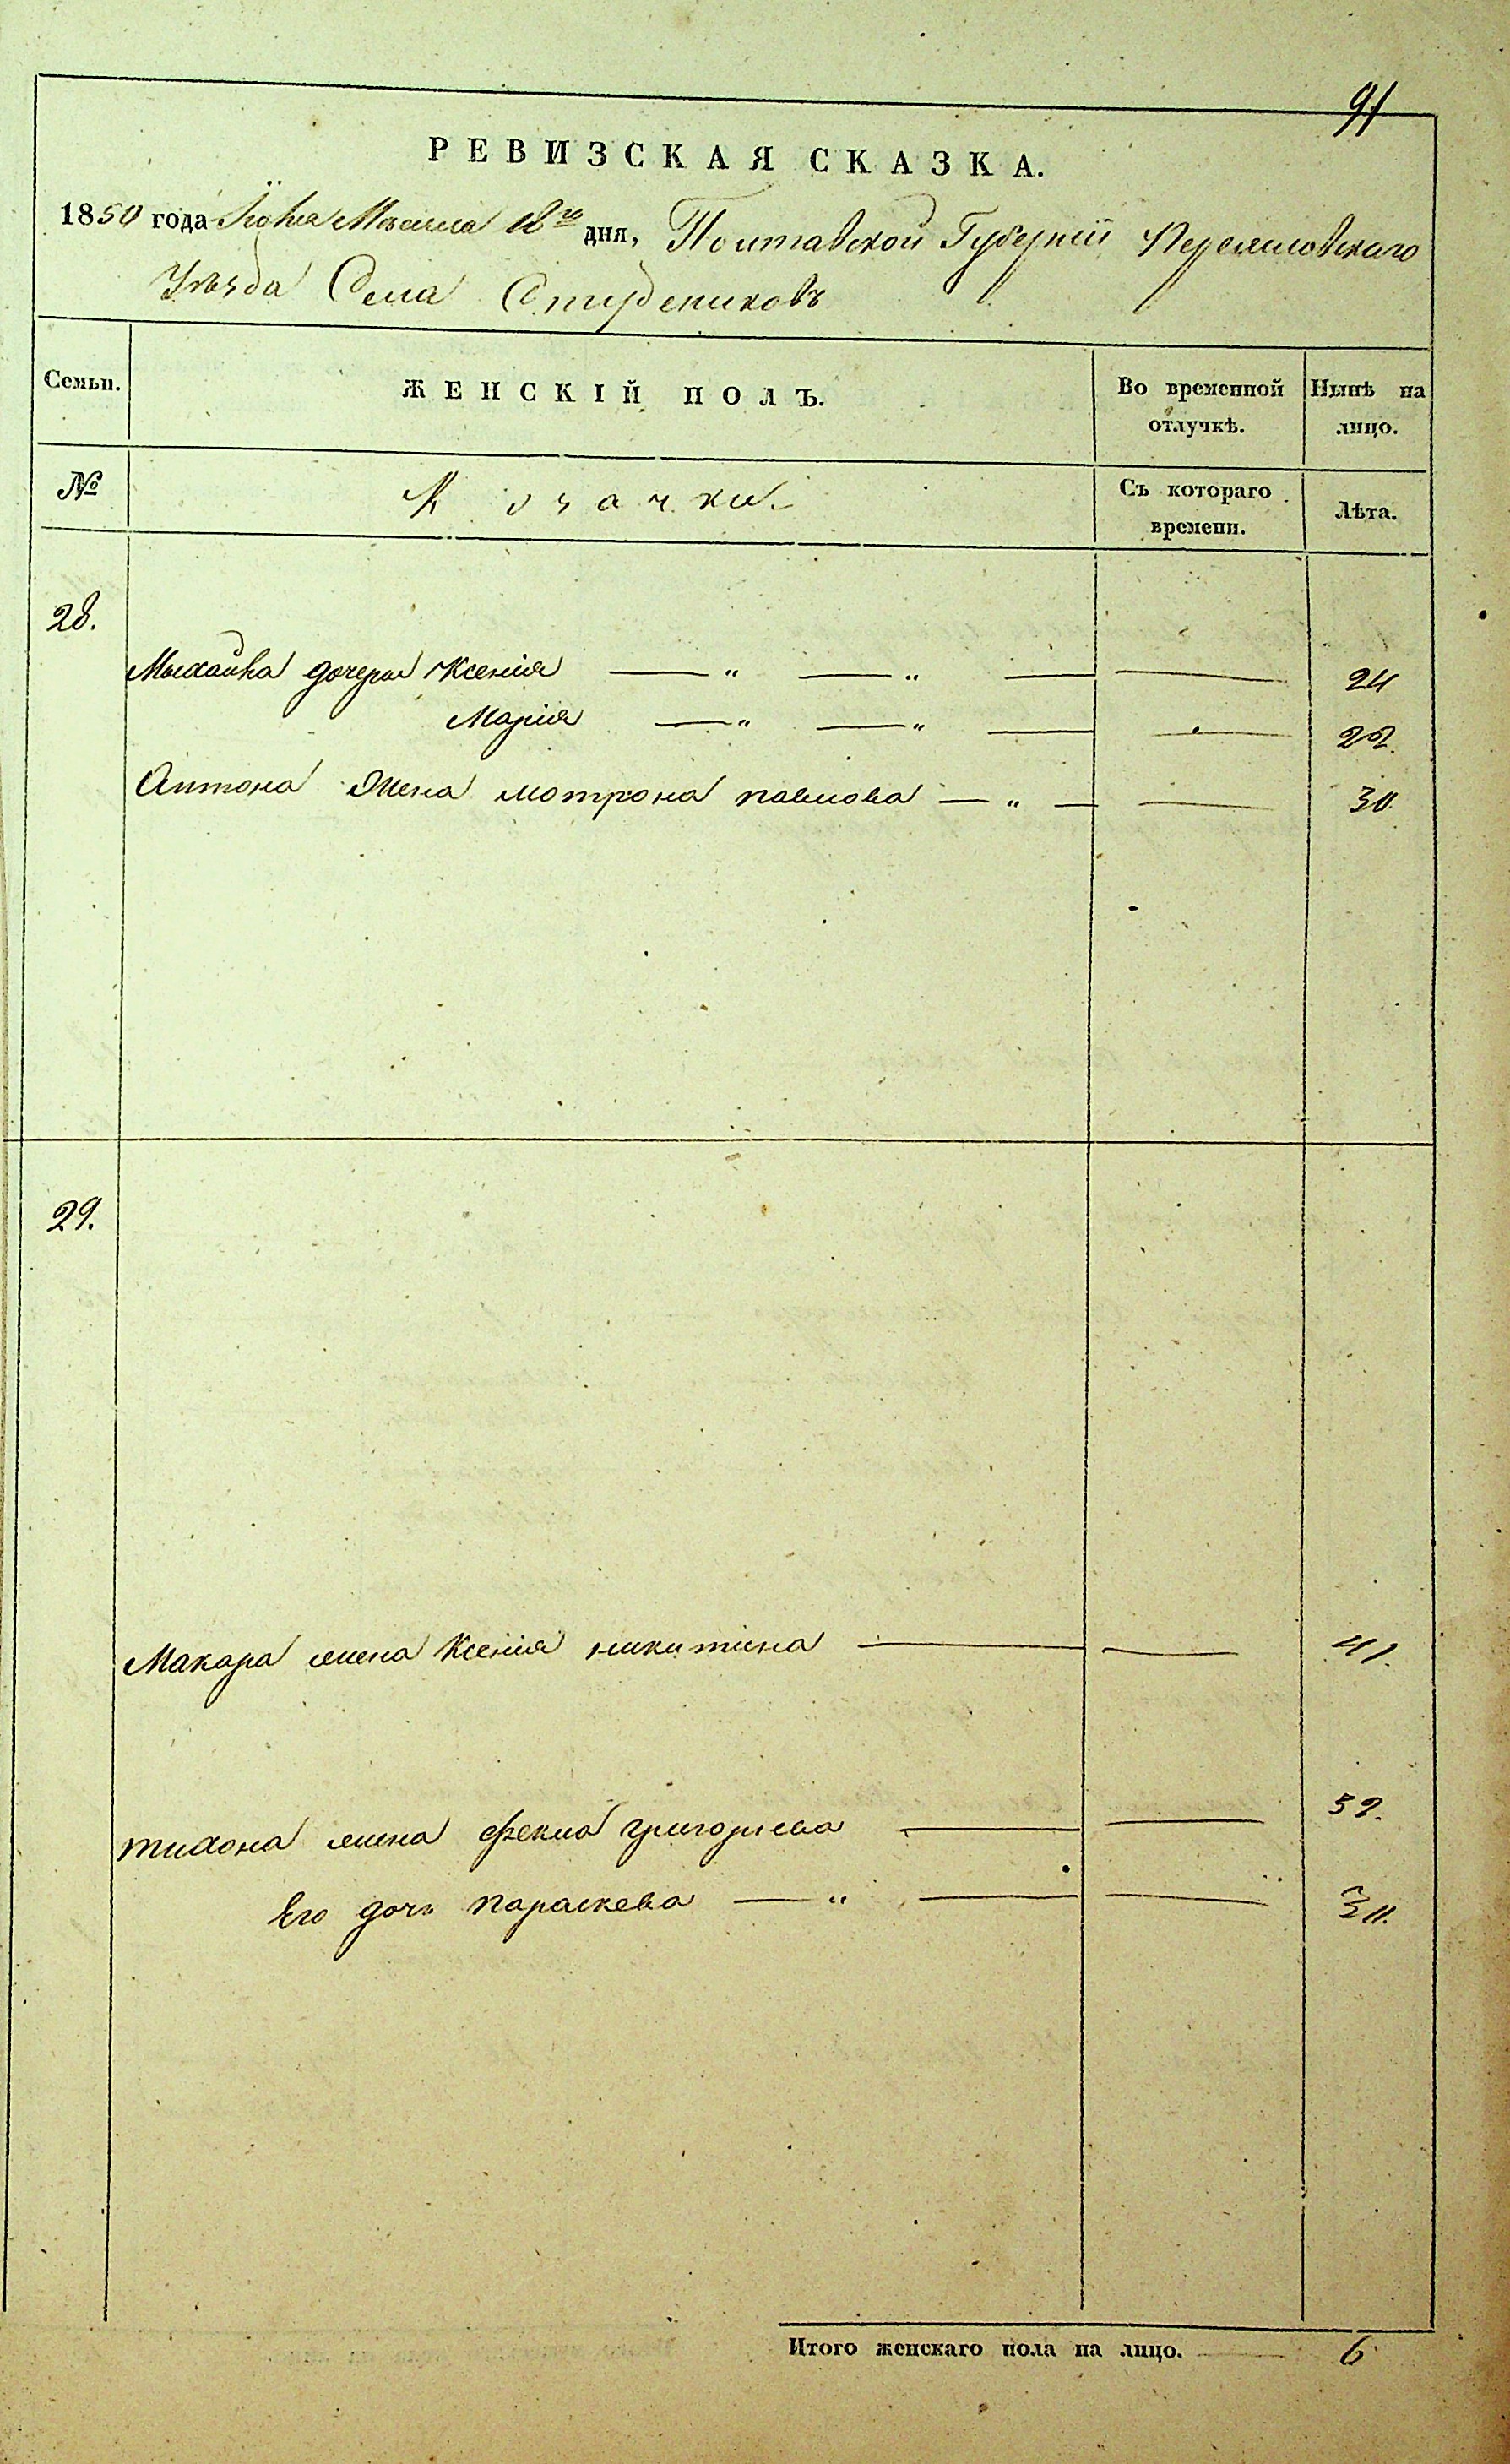 91
РЕВИЗСКАЯ СКАЗКА.
1850 года Мѣсяца 18го дня, Полтавской Губерніи Переяславскаго
Уѣзда Села Студениковъ
Семьи.
ЖЕНСКІЙ ПОЛЪ.
Во временной отлучкѣ.
Нынѣ на лицо.
№
Козачки.
Съ котораго времени.
Лѣта.
28.
Михайла дочери Ксенія — " — " — — 24
Марія — " — " — — 22.
Антона Жена мотрона павлова — " — — 30.
29.
Макара жена Ксенія никитина — — 41.
тихона жена Фекла григориева — — 52.
Его дочь параскева — " — —
Итого женскаго пола на лицо. 6